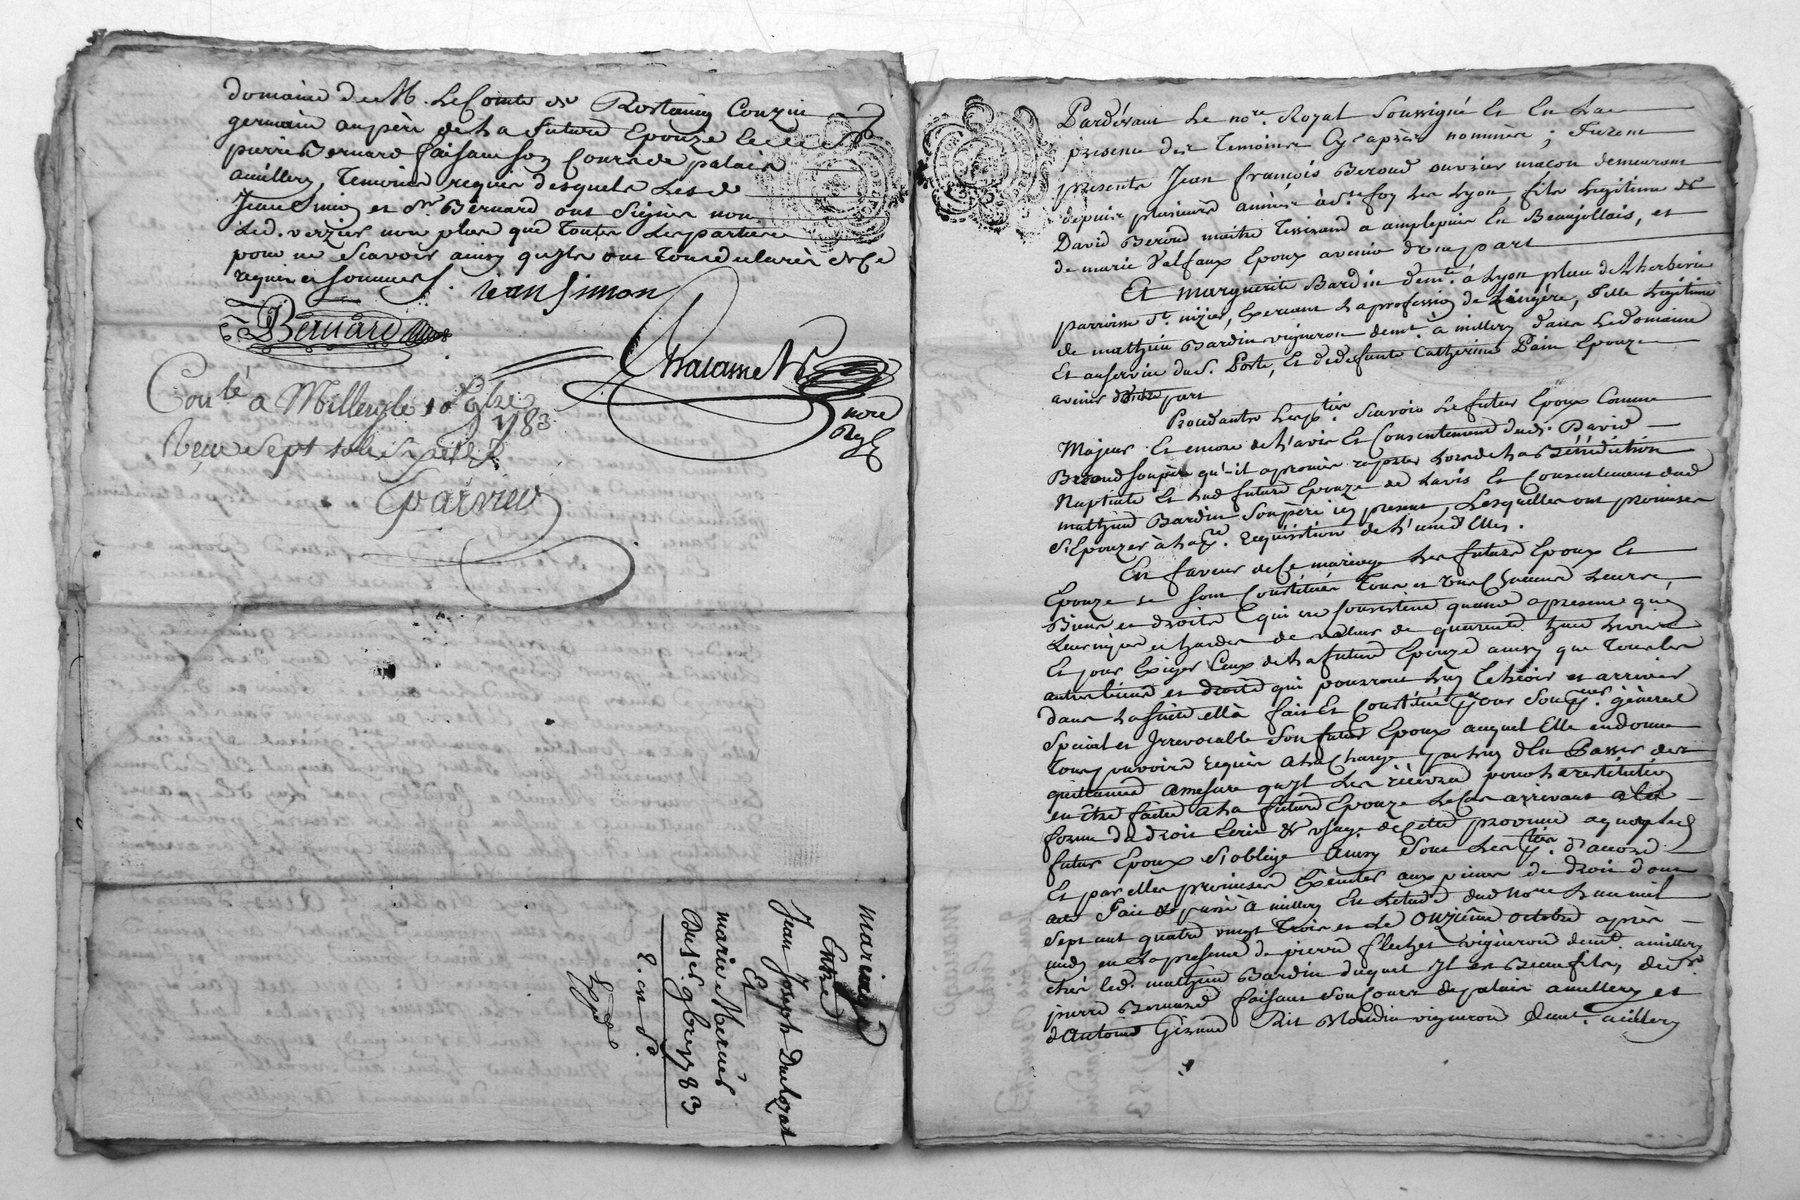 domaine de M. Le Comte de Rostaing Couzin
germain au père de la future Epouze
pierre Bernard faisant son Cours de palais
amillery, Temoins requis desquels Les d.
Jean Simon et Sr. Bernard ont Signés non
Led. verzier non plus que toutes Les parties
pour ne Scavoir ainsy qu'ils ont Tous declarés de Ce
requis et sommés. jean Simon
Bernard
not re
Roy l
Conlé a Millery le 10e 9bre
1783
Reçu Sept sols Six d.
mariage
Entre
Jean Joseph Duclozat
Et
marie Mernier
Du 5e. 9bre 1783
2. en d.
Expd
Pardevant Le nore. Royal Soussigné Et En La
presence des Temoins Cy après nommés ; Furent
presents Jean françois Beroud ouvrier maçon demeurant
depuis plusieurs années à Ste. foy Les Lyon, fils Legitime de
David Beroud maitre Tisserand a amplepuis En Beaujollais, et
de marie Valfaux Epoux avenir d'une part
Et marguerite Bardin demt. à Lyon place de L'herberie
parroisse St. nizier, Exerçant La profession de Lingère, fille Legitime
de mathieu Bardin vigneron demt. à millery dans Le domaine
Et au service du S. Porte, Et de defunte Catherine Pain Epouze
avenir d'autre part
Procedantes Les pties. Scavoir Le futur Epoux Comme
Majeur Et encore de L'avis Et Consentement dud. David
Beroud Son père qu'il a promis reporter Lors de La Bénédiction
Nuptiale Et Lad. future Epouze de Lavis Et Consentement dud.
mathieu Bardin Son père icy present, Lesquelles ont promises
S'Epouzer à La pre. requisition de L'une d'Elles.
En faveur de Ce mariage Les futurs Epoux Et
Epouze se Sont Constitués Tous et Uns Chacuns Leurs
Biens et droits qui ne Consistent quand a present qu'en
Leurs nipes et hardes de valeur de quarente huit Livres
Et pour Exiger Ceux de La future Epouze ainsy que Tous Les
autres biens et droits qui pourront Luy Echéoir et arriver
dans La Suite Elle a fait Et Constitué pour Son preur. général
Special et Irrevocable Son futur Epoux auquel Elle en donne
Tous pouvoirs requis a La Charge par Luy d'En Passer des
quittances a mesure qu'Il Les recevra pour La restitution
en être faite a La future Epouze Le Cas arrivant a la
forme du droit Ecrit & usage de Cette province a quoy Led.
futur Epoux S'oblige Ainsy Sont Les pties. d'accord
Et par elles promises Exécuter aux peines de droit dont
acte Fait & passé à millery En L'etude dud. Nore. L'an mil
Sept cent quatre vingt Trois et Le Onzième octobre après
midy en La presence de pierre flechet vigneron demt. amillery
chés led. mathieu Bardin duquel Il est Beaufils, de Sr.
pierre Bernard faisant Son Cours de palais amillery et
d'Antoine Giraud dit Blondin vigneron demt. a millery